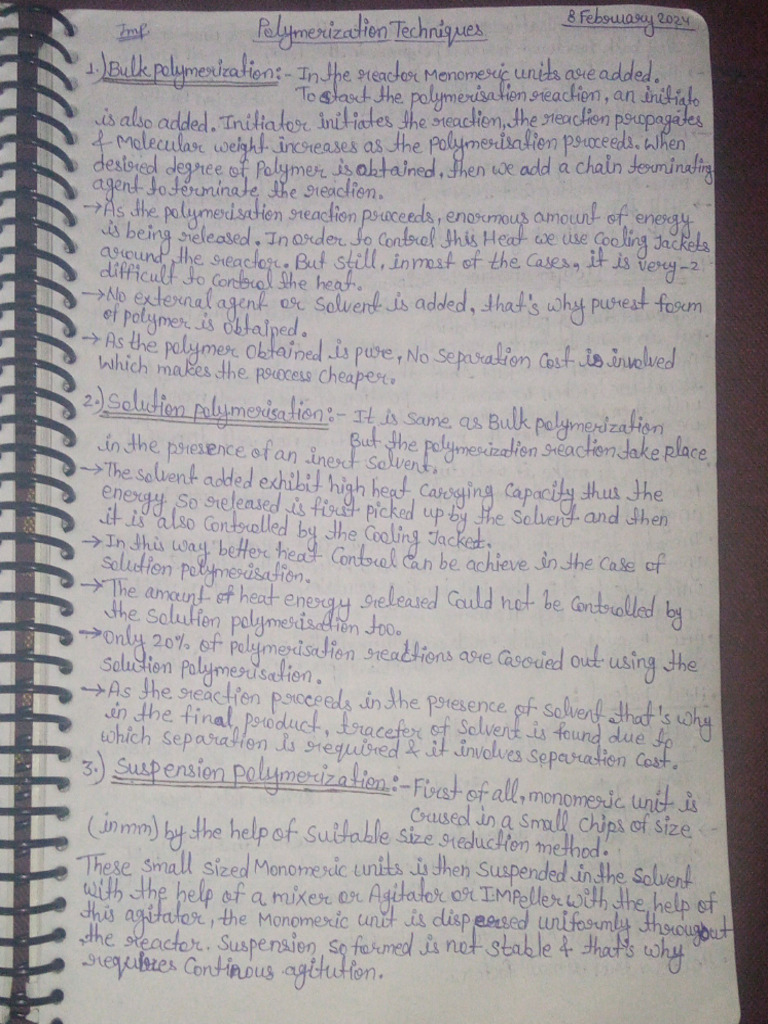 Imp.
Polymerization Techniques
8 February 2024
1.) Bulk polymerization:- In the reactor Monomeric units are added.
To start the polymerisation reaction, an initiato
is also added. Initiator initiates the reaction, the reaction propagates
& Molecular weight increases as the polymerisation proceeds. When
desired degree of Polymer is obtained, then we add a chain terminating
agent to terminate the reaction.
→ As the polymerisation reaction proceeds, enormous amount of energy
is being released. In order to Control this Heat we use Cooling Jackets
around the reactor. But still, in most of the Cases, it is very-2
difficult to Control the heat.
→ No external agent or Solvent is added, that's why purest form
of polymer is obtained.
→ As the polymer Obtained is pure, No Separation Cost is involved
Which makes the process Cheaper.
2.) Solution polymerisation:- It is Same as Bulk polymerization
But the polymerization reaction take place
in the presence of an inert Solvent.
→ The solvent added exhibit high heat Carrying Capacity thus the
energy so released is first picked up by the Solvent and then
it is also Controlled by the Cooling Jacket.
→ In this way better heat Control Can be achieve in the Case of
Solution polymerisation.
→ The amount of heat energy released Could not be Controlled by
the Solution polymerisation too.
→ Only 20% of polymerisation reactions are Carried out using the
Solution Polymerisation.
→ As the reaction proceeds in the presence of solvent that's why
in the final product, tracefer of Solvent is found due to
which Separation is required & it involves Separation Cost.
3.) Suspension polymerization:- First of all, monomeric unit is
Crused in a Small Chips of Size
(in mm) by the help of Suitable Size reduction method.
These Small Sized Monomeric units is then Suspended in the Solvent
With the help of a mixer or Agitator or IMPeller with the help of
this agitator, the Monomeric unit is dispersed uniformly throughout
the reactor. Suspension so formed is not stable & that's why
requires Continous agitution.